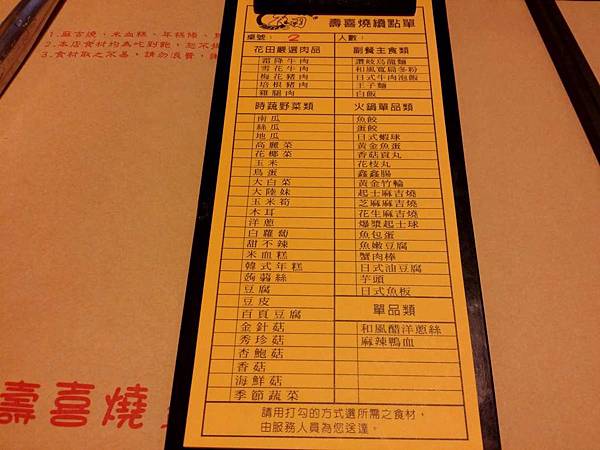 1.麻吉燒、米血糕、年糕條、
2.本店食材均為吃到飽，恕不
3.食材取之不易，請勿浪費，
壽喜燒續點單
桌號： 2
人數：
花田嚴選肉品
霜降牛肉
雪花牛肉
梅花豬肉
培根豬肉
雞腿肉
時蔬野菜類
南瓜
絲瓜
地瓜
高麗菜
花椰菜
玉米
鳥蛋
大白菜
大陸妹
玉米筍
木耳
洋蔥
白蘿蔔
甜不辣
米血糕
韓式年糕
蒟蒻絲
豆腐
豆皮
百頁豆腐
金針菇
秀珍菇
杏鮑菇
香菇
海鮮菇
季節蔬菜
副餐主食類
讚岐烏龍麵
和風寬扁冬粉
日式牛肉泡飯
王子麵
白飯
火鍋單品類
魚餃
蛋餃
日式蝦球
黃金魚蛋
香菇貢丸
花枝丸
鑫鑫腸
黃金竹輪
起士麻吉燒
芝麻麻吉燒
花生麻吉燒
爆漿起士球
魚包蛋
魚嫩豆腐
蟹肉棒
日式油豆腐
芋頭
日式魚板
單品類
和風醋洋蔥絲
麻辣鴨血
請用打勾的方式選所需之食材，
由服務人員為您送達。
壽喜燒